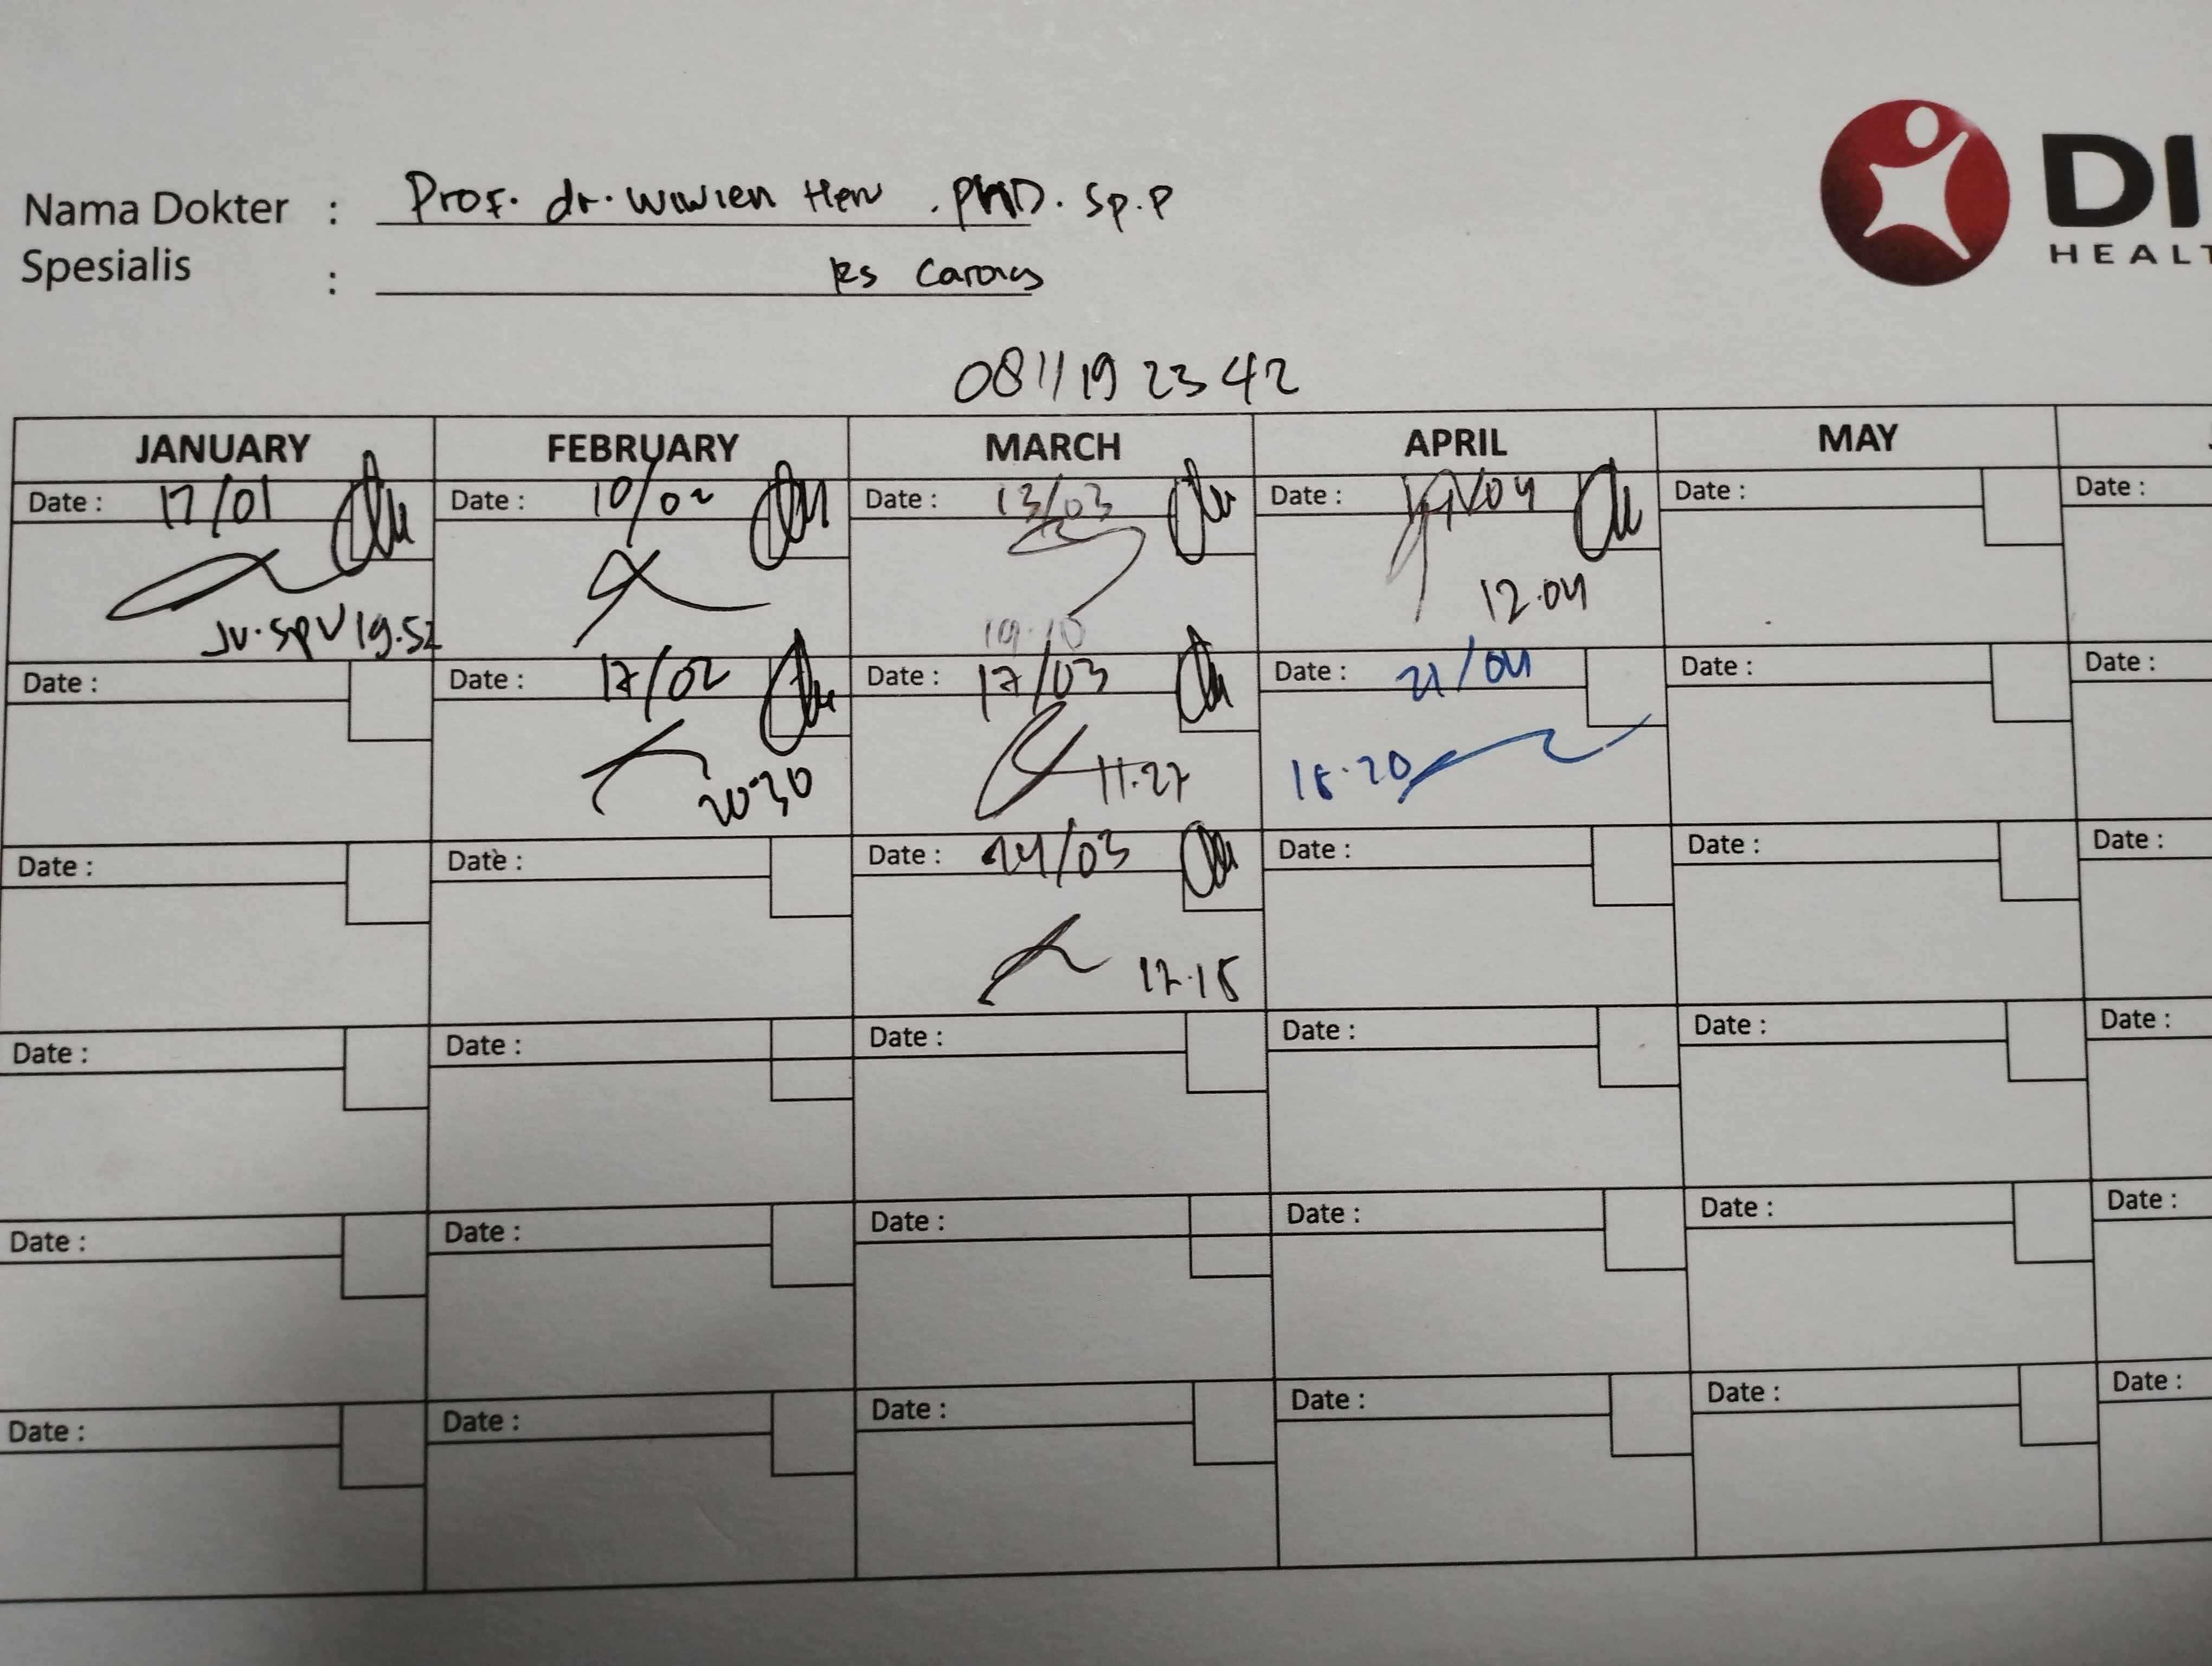 DI
HEALT
Nama Dokter : Prof. dr. Wiwien Heru . PhD. Sp.P
Spesialis : RS Carolus
0811 19 23 42
JANUARY FEBRUARY MARCH APRIL MAY
Date : 17/01 Date : 10/02 Date : 13/03 Date : /04 Date : Date :
12.04
Jv. SpV 19.52 19.10
Date : Date : 17/02 Date : 17/03 Date : 21/04 Date : Date :
20.30 11.27 18.20
Date : Date : Date : 24/03 Date : Date : Date :
12.18
Date : Date : Date : Date : Date : Date :
Date : Date : Date : Date : Date : Date :
Date : Date : Date : Date : Date : Date :